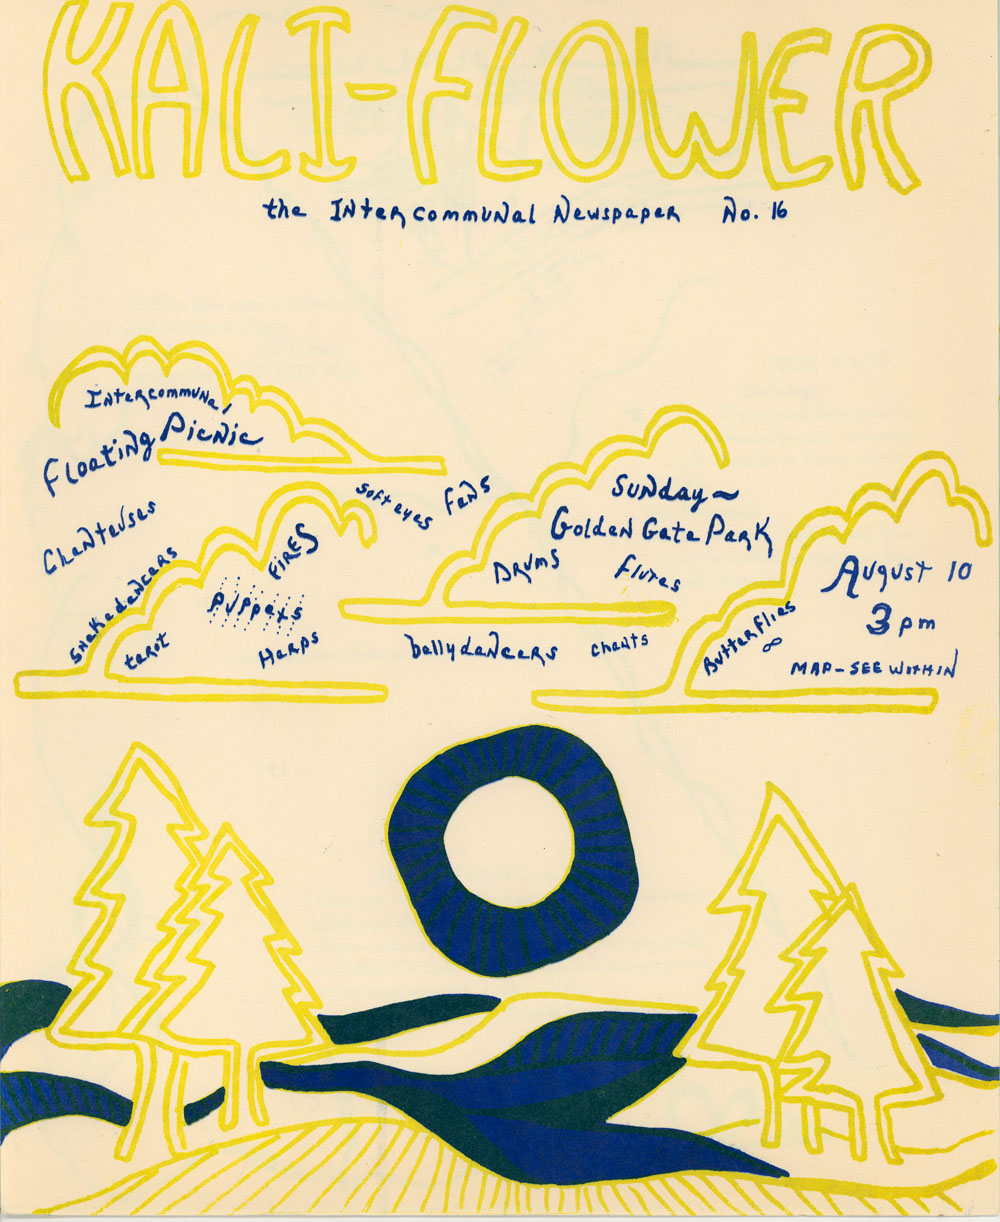 KALI-FLOWER
the Intercommunal Newspaper No. 16
Intercommunal
Floating Picnic
Chanteuses
snakedancers
tarot
fires
puppets
Harps
soft eyes
fans
Sunday ~
Golden Gate Park
Drums
flutes
bellydancers
chants
August 10
3 pm
Butterflies
∞
MAP - SEE WITHIN